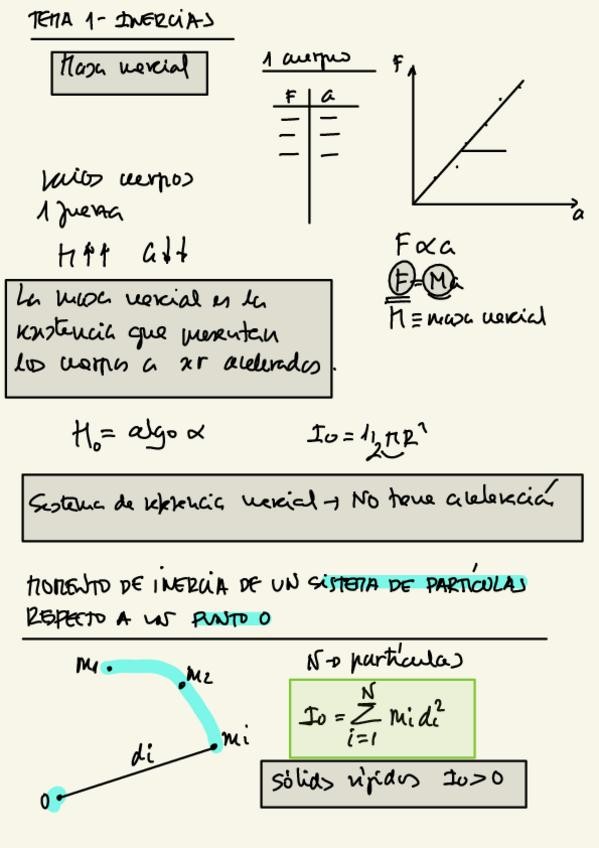 TEMA 1- INERCIAS
Masa inercial
1 cuerpo
F a
F
a
Varios cuerpos
1 fuerza
M↑↑ a↓↓
F∝a
F=Ma
M≡masa inercial
La masa inercial es la
resistencia que presentan
los cuerpos a ser acelerados.
M₀ = algo α
I₀ = 1/2 MR²
Sistema de referencia inercial → No tiene aceleración
MOMENTO DE INERCIA DE UN SISTEMA DE PARTÍCULAS
RESPECTO A UN PUNTO O
m1
m2
mi
di
O
N→ partículas
I₀ = ∑ᵢ₌₁ᴺ mi di²
Sólidos rígidos I₀>0